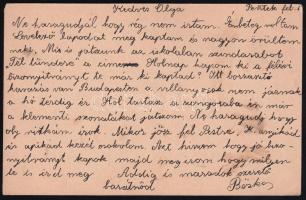 Kedves Olga Péntek feb. 1
Ne haragudjál hogy rég nem irtam. Beteg voltam
Levelező lapodat meg kaptam és nagyon örültem
neki. Mi is játszunk az iskolában szindarabot
Tél tündére a cime. Holnap kapom ki a félévi
bizonyitványt te már ki kaptad? Itt borzasztó
havazás van Budapesten a villanyosok nem járnak
a hó térdig ér. Hol tartasz a zongorába én már
a klementi szonátákat játszom. Ne haragudj hogy
oly ritkán irok. Mikor jösz fel Pestre, Anyukád
és apukád kezét csókolom. Azt hiszem hogy jó bizo-
nyitványt kapok majd meg irom hogy milyen
te is ird meg Addig is maradok szerető
barátnőd Böske